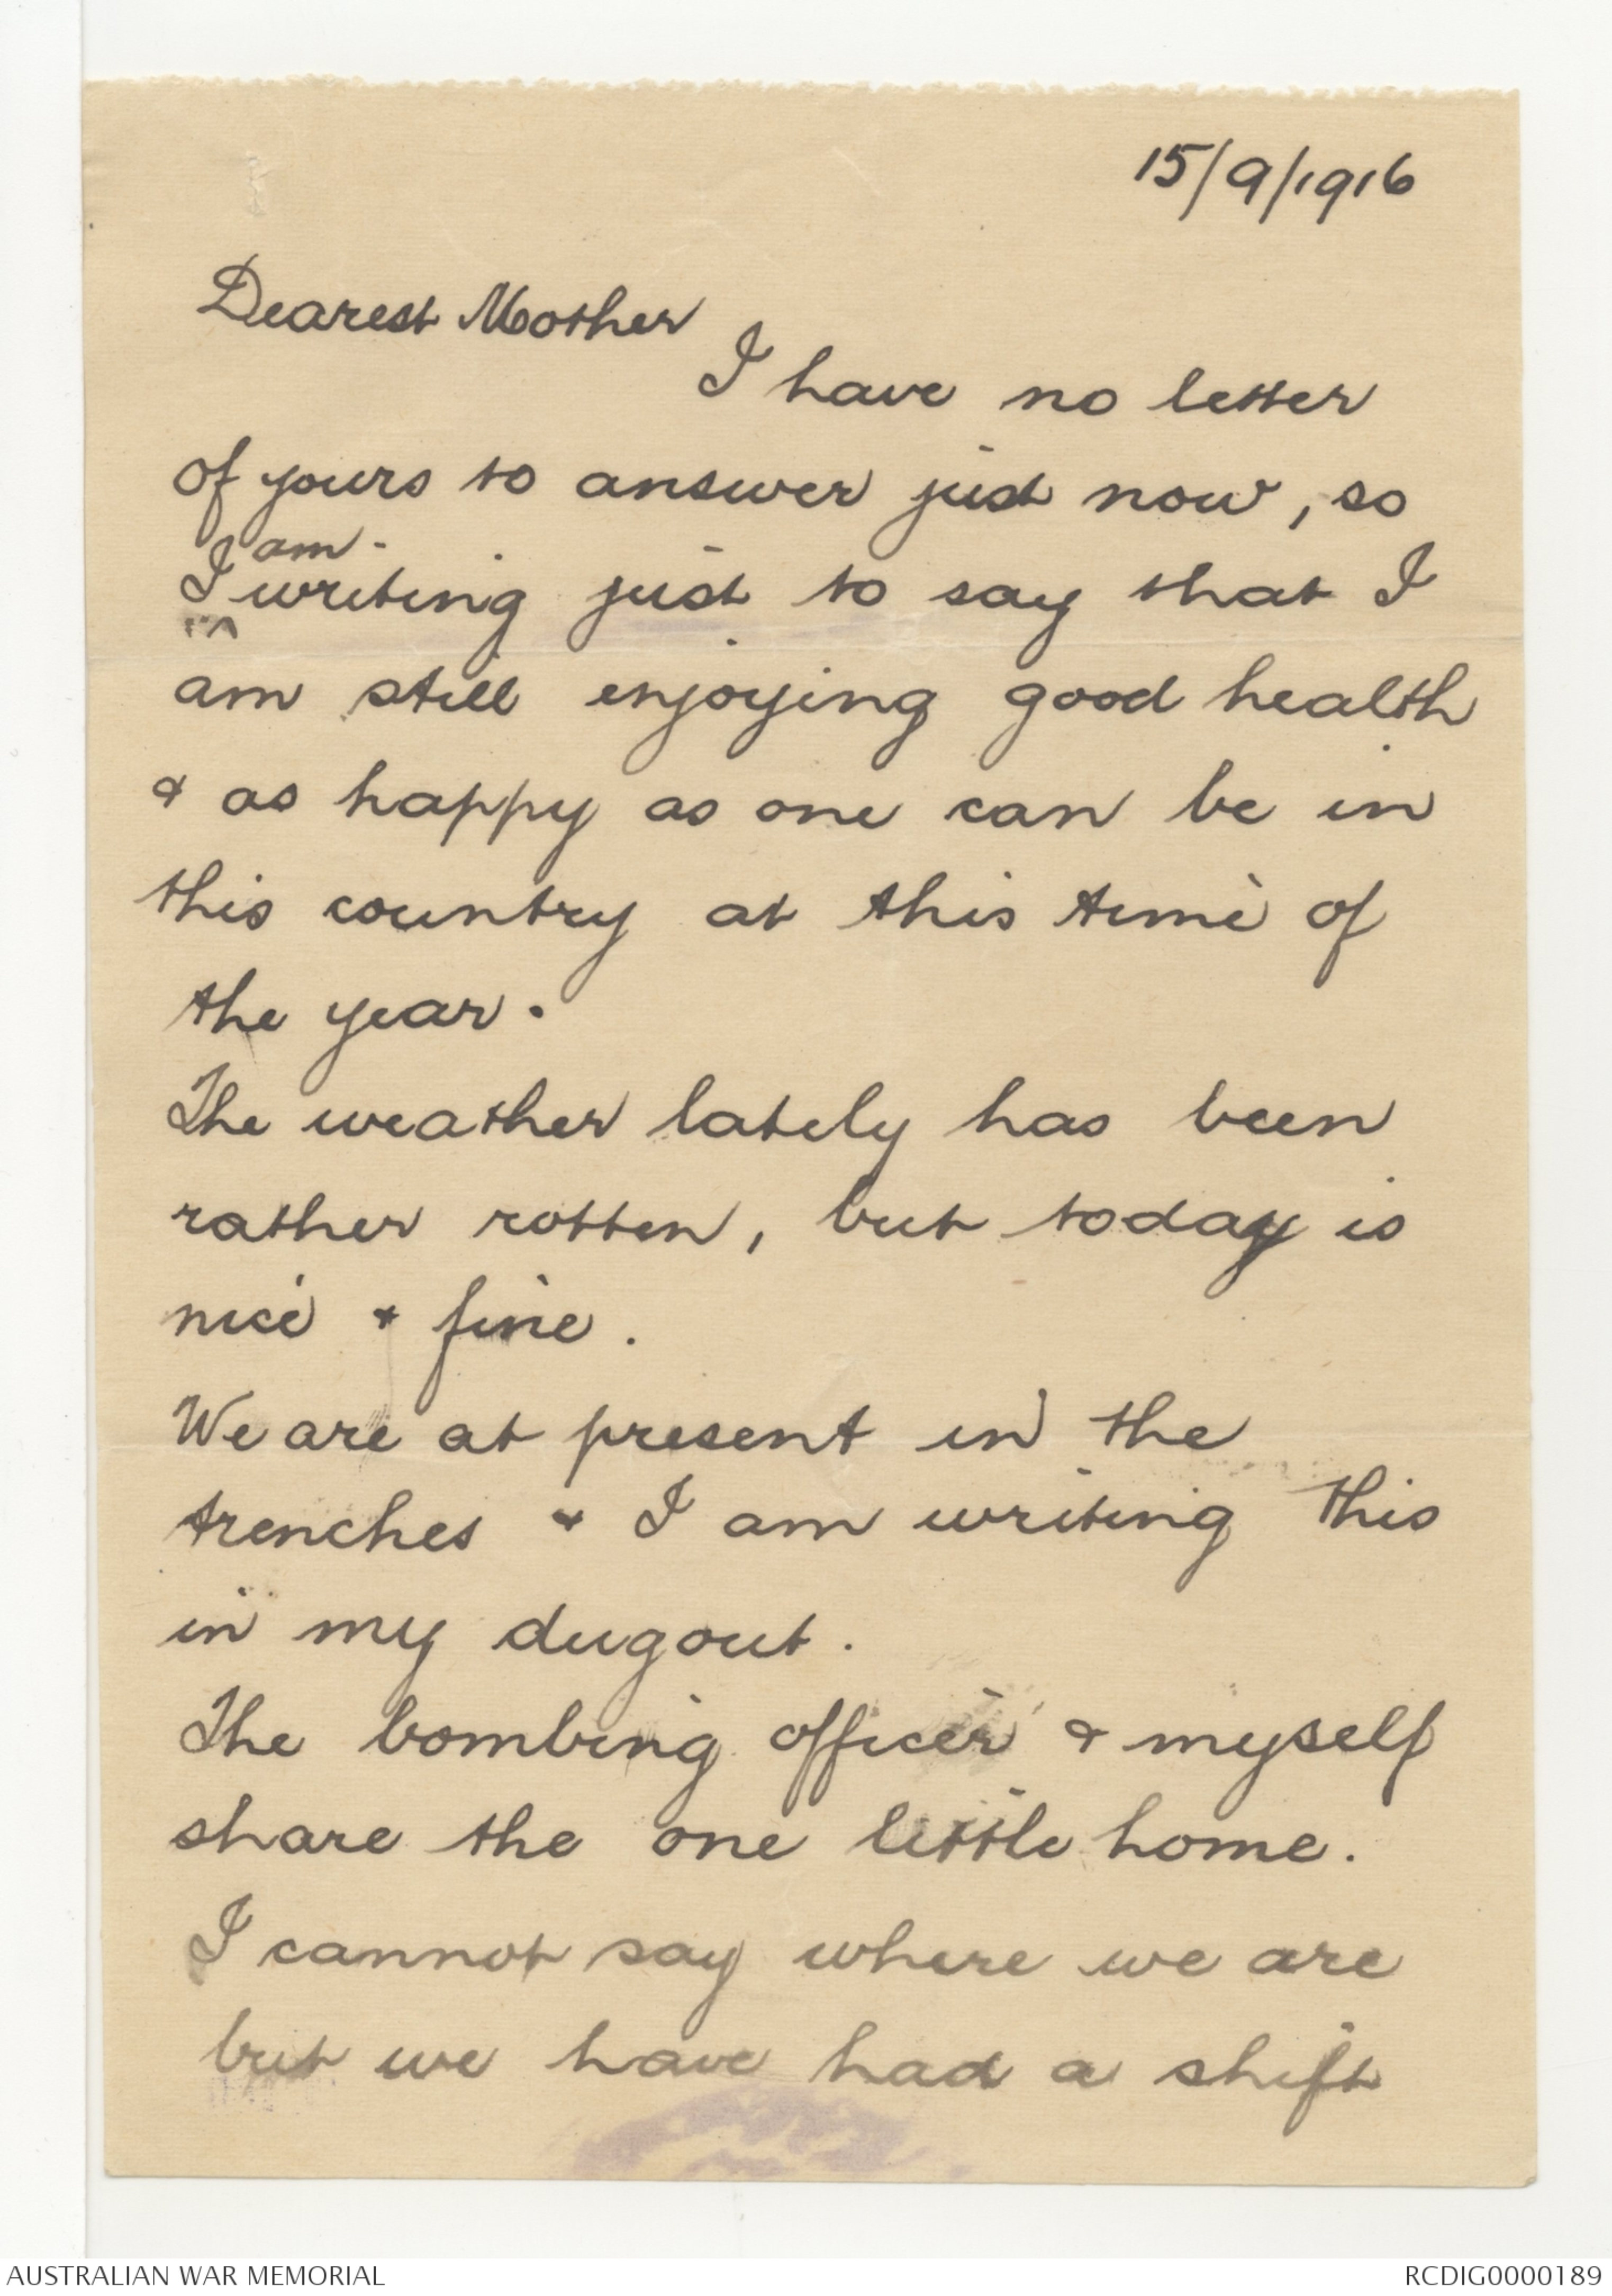 15/9/1916
Dearest Mother
I have no letter
of yours to answer just now, so
I am writing just to say that I
am still enjoying good health
& as happy as one can be in
this country at this time of
the year.
The weather lately has been
rather rotten, but today is
nice & fine.
We are at present in the
trenches & I am writing this
in my dugout.
The bombing officer & myself
share the one little home.
I cannot say where we are
but we have had a shift
AUSTRALIAN WAR MEMORIAL
RCDIG0000189